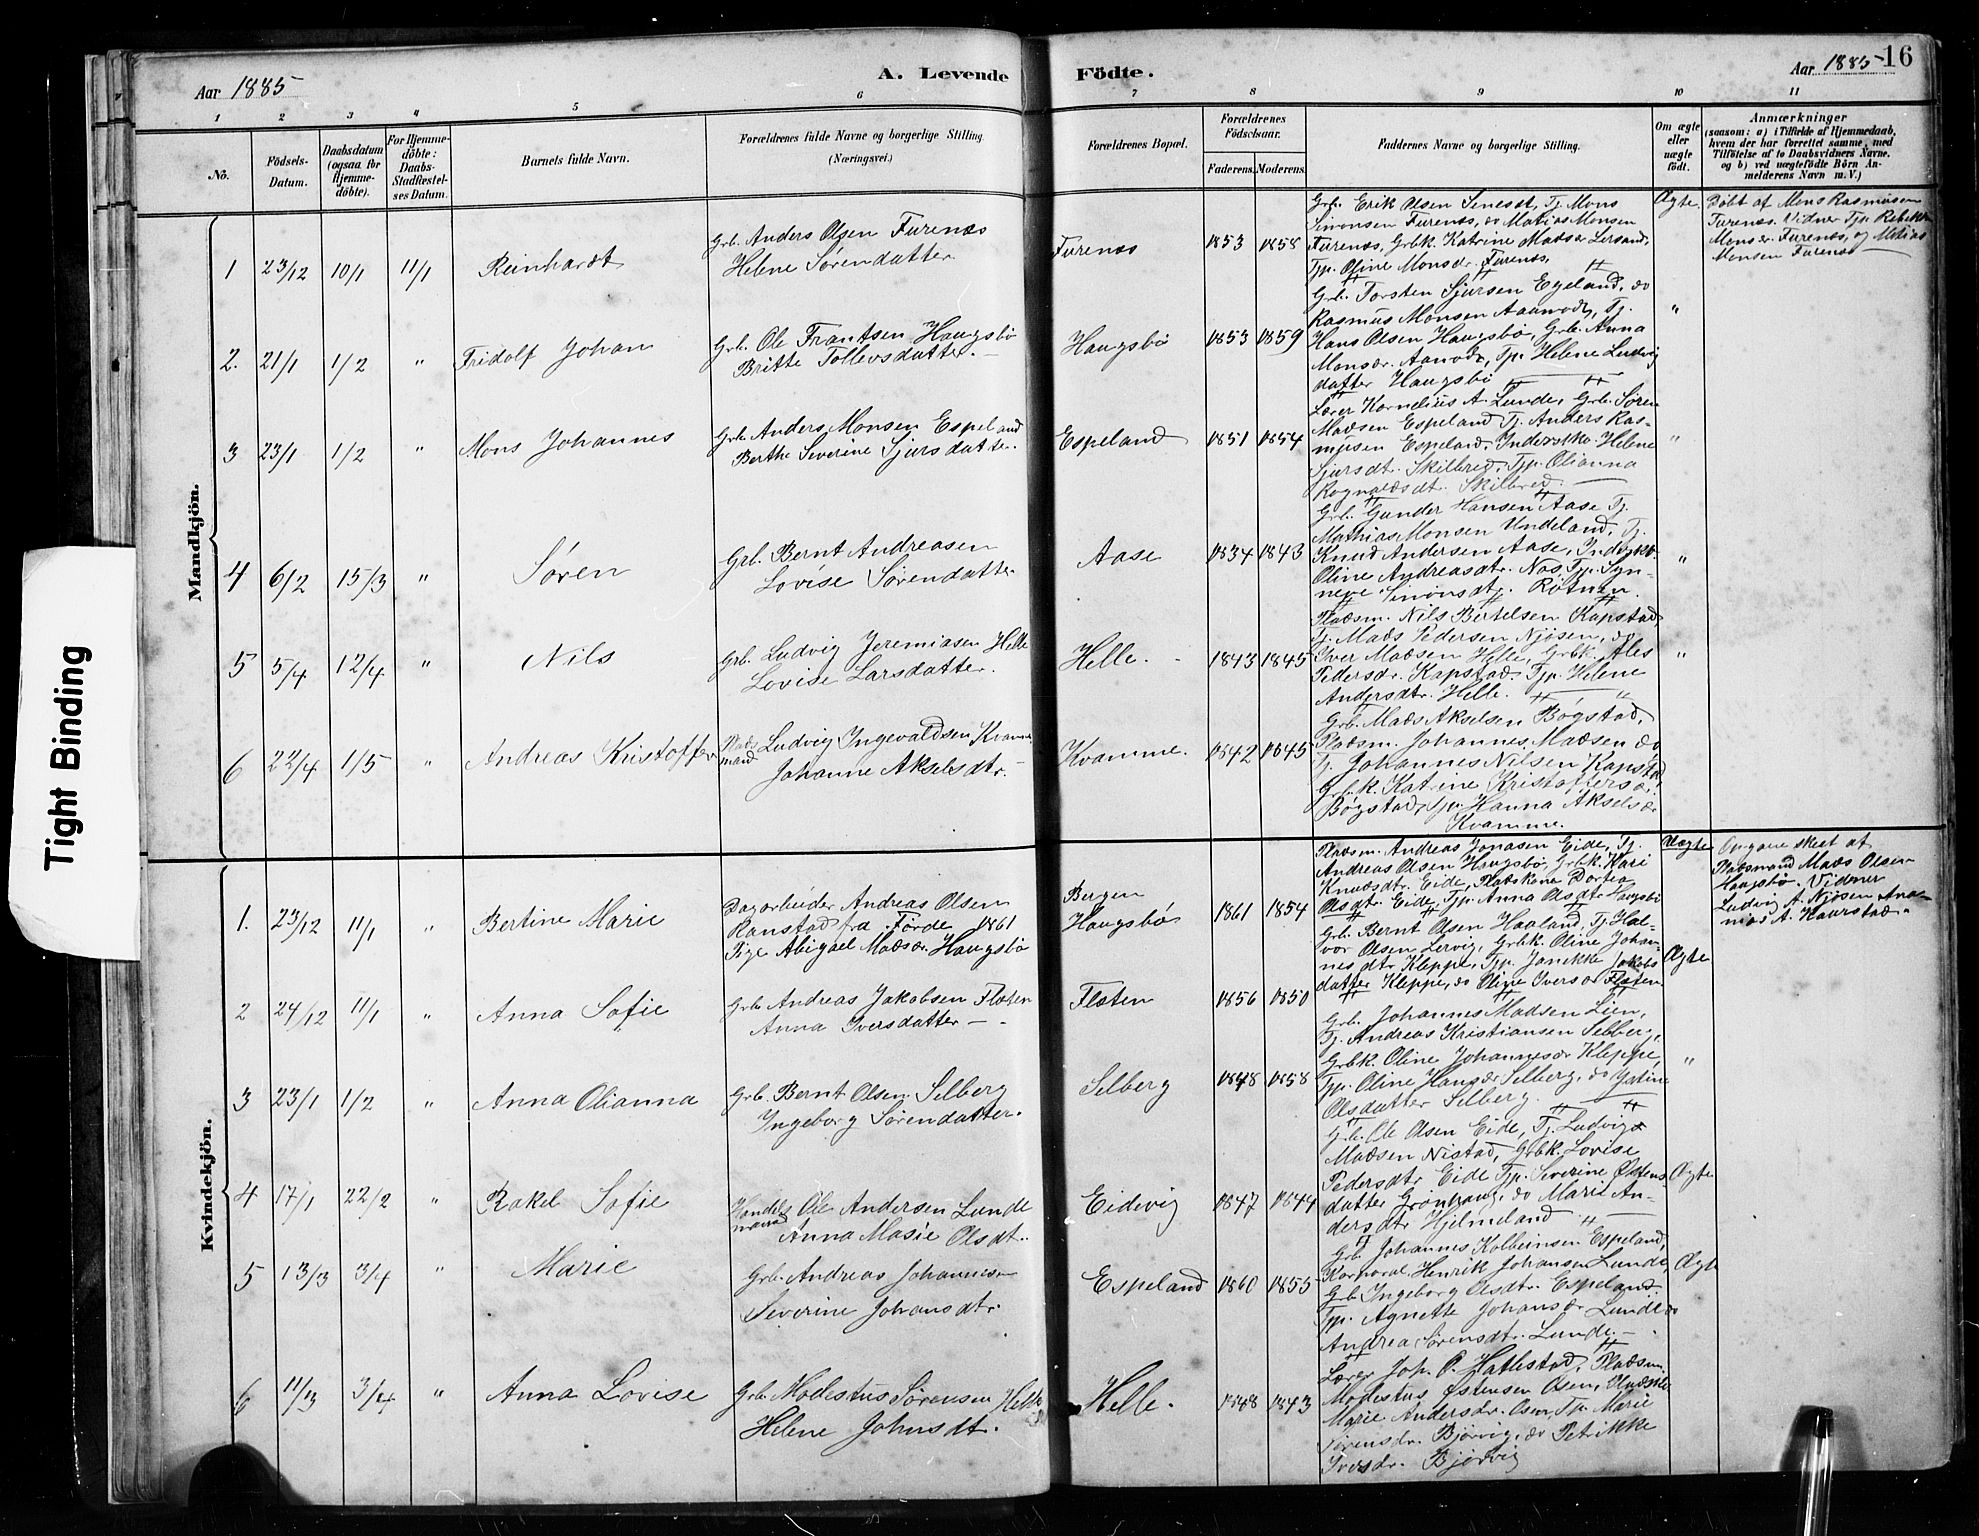 Tight Binding
Aar 1885
A. Levende Födte.
Aar 1885
16
1 2 3 4 5 6 7 8 9 10 11
No.
Födsels-Datum.
Daabsdatum (ogsaa for Hjemme-döbte).
For Hjemme-döbte: Daabs-Stadfæstel-ses Datum.
Barnets fulde Navn.
Forældrenes fulde Navne og borgerlige Stilling. (Næringsvei.)
Forældrenes Bopæl.
Forældrenes Födselsaar.
Faderens. Moderens.
Faddernes Navne og borgerlige Stilling.
Om ægte eller uægte födt.
Anmærkninger
(saasom: a) i Tilfælde af Hjemmedaab, hvem der har forrettet samme, med Tilföielse af to Daabsvidners Navne. og b) ved uægtefödte Börn An-melderens Navn m. V.)
Mandkjön.
1 23/12 10/1 11/1 Reinhardt
Grb. Anders Olsen Furenæs
Helene Sørendatter
Furenæs 1853 1858
Grb. Erik Olsen Senest, Tj. Mons
Simonsen Furenæs, do Matias Monsen
Furenæs, Grbk. Katrine Madsdr.
Tjp. Oline Monsdr. Furenæs.
Ægte
Döbt af Mons Rasmusen
Furenæs. Vidner Tjp. Rebekka
Monsdr. Furenæs, og Matias
Monsen Furenæs
2. 21/1 1/2 " Fridolf Johan
Grb. Ole Frantsen Haugsbø
Britte Tollevsdatter.
Haugsbø 1853 1859
Grb. Torsten Sjursen Egeland, do
Rasmus Monsen Aanode, Tj.
Hans Olsen Haugsbø, Grb. Anna
Monsdr. Aanode, Tjp. Helene Ludvig
datter Haugsbø
"
3 23/1 1/2 " Mons Johannes
Grb. Anders Monsen Espeland
Berthe Severine Sjursdatter.
Espeland 1851 1854
Lærer Kornelius A. Lunde, Grb. Søren
Madsen Espeland Tj. Anders Ras-
musen Espeland, Inderstko. Helene
Sjursdt. Skilbred, Tjp. Olianna
Rognaldsdt. Skilbred.
"
4 6/2 15/3 " Søren
Grb. Bernt Andreasen
Lovise Sørendatter
Aase 1834 1843
Grb. Gunder Hansen Aase Tj.
Mathias Monsen Undeland, Tj.
Knud Andersen Aase,
Oline Andreasdtr. Nos, Tjp. Syn-
neve Simonsdt.
"
5 5/4 12/4 " Nils
Grb. Ludvig Jeremiasen Helle
Lovise Larsdatter.
Helle. 1843 1845
Pladsm. Nils Bertelsen Kapstad,
Tj. Mads Pedersen Njøsen, do
Iver Madsen Helle, Grbk. Ales
Pedersdr. Kapstad, Tjp. Helene
Andersdtr. Helle.
"
6 22/4 1/5 " Andreas Kristoffer
Plads mand Ludvig Ingevaldsen Kvamme
Johanne Akselsdtr.
Kvamme. 1842 1845
Grb. Mads Akselsen Bøgstad,
Pladsm. Johannes Madsen do
Tj. Johannes Nilsen Kapstad,
Grbk. Katrine Kristoffersdr.
Bøgstad, Tjp. Hanna Akselsdr
Kvamme.
Kvindekjön.
1. 23/12 11/1 " Bertine Marie
Dagarbeider Andreas Olsen
Ranstad fra Førde 1861
Pige Abigael Madsdr. Haugsbø
Bergen
Haugsbø 1861 1854
Pladsm. Andreas Jonasen Eide, Tj.
Andreas Olsen Haugsbø, Grbk. Kari
Knudsdtr. Eide, Pladskone Dortea
Olsdtr. Eide, Tjp. Anna Olsdtr. Haugsbø
Uægte
Opgave skeet af
Pladsmand Mads Olsen
Haugsbø. Vidner
Ludvig A. Njøsen
2 24/12 11/1 " Anna Sofie
Grb. Andreas Jakobsen Flaten
Anna Iversdatter
Flaten 1856 1850
Grb. Bernt Olsen Haaland, Tj. Hal-
vor Olsen Lervig, Grbk. Oline Johan-
nesdtr. Kleppe, Tjp. Janikke Jakobs
datter Kleppe, do Oline Iversdr Flaten
Ægte
3 23/1 1/2 " Anna Olianna
Grb. Bernt Olsen Selberg
Ingeborg Sørendatter.
Selberg 1848 1858
Grb. Johannes Madsen Lien,
Tj. Andreas Kristiansen Selberg,
Grbk. Oline Johannesdr. Kleppe,
Tjp. Oline Hansdr Selberg, do
Olsdatter Selberg.
"
4 17/1 22/2 " Rakel Sofie
Handelsmand Ole Andersen Lunde
Anna Marie Olsdt.
Eidevig 1847 1844
Grb. Ole Olsen Eide, Tj. Ludvig
Madsen Nistad, Grbk. Lovise
Pedersdtr Eide Tjp. Severine Østens
datter Grønhaug, do Marie An-
dersdtr Hjelmeland
Ægte
5 13/3 3/4 " Marie
Grb. Andreas Johannesen
Severine Johansdtr.
Espeland 1860 1855
Grb. Johannes Kolbeinsen Espeland,
Korporal Henrik Johansen Lunde,
Grb. Ingeborg Olsdtr. Espeland.
Tjp. Agnette Johansdr Lunde do
Andrea Sørensdtr. Lunde.
Ægte
6 11/3 3/4 " Anna Lovise
Grb. Modestus Sørensen Helle
Helene Johnsdt.
Helle. 1848 1843
Lærer Joh. O. Hatlestad, Pladsm.
Modestus Østensen Osen,
Marie Andersdr. Osen, Tjp. Marie
Sørensdr. Bjørvig, do Petrikke
Iversdr. Bjørvig